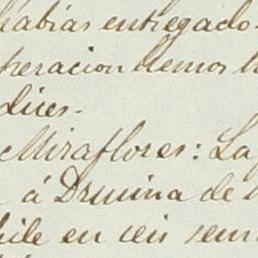 habias entregado
peracion hemos
dices.
Miraflores: La
á Druina de
hile en seis sem